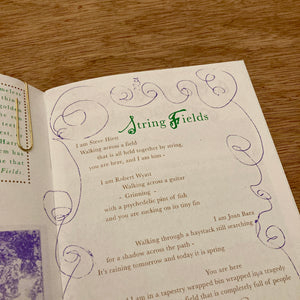 meless
thin
golden
he
text
est,
Harr
em has
e that
Fields.
String Fields
I am Steve Hiett
Walking across a field
that is all held together by string,
you are hear, and I am him -
I am Robert Wyatt
Walking across a guitar
- Grinning -
with a psychedelic pint of fish
and you are rocking on its tiny fin
I am Joan Baez
Walking through a haystack still searching
for a shadow across the path -
It's raining tomorrow and today it is spring
You are here
I am in a tapestry wrapped bin wrapped in a tragedy
field that is completely full of people